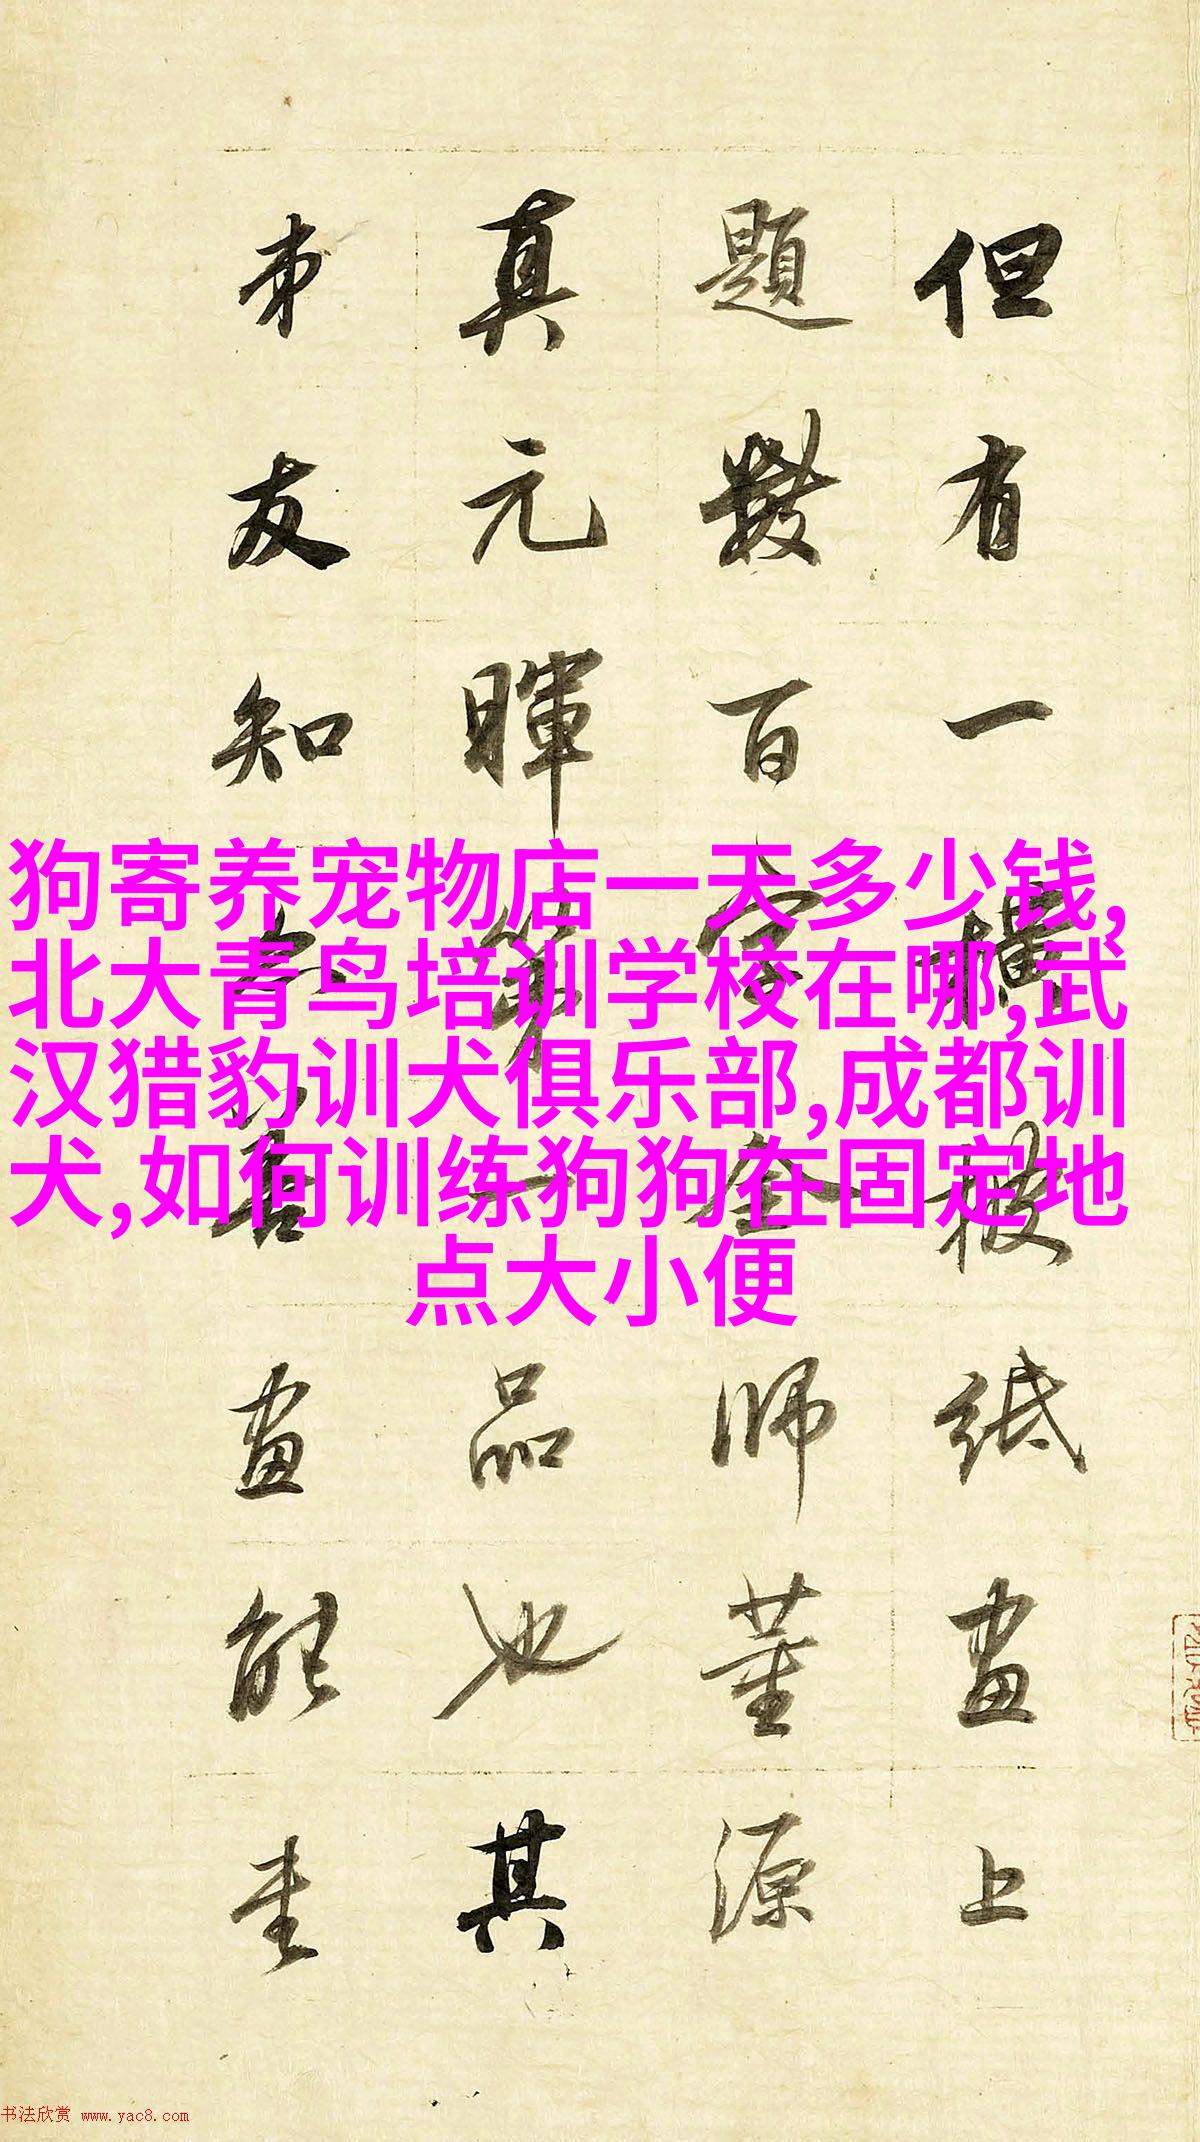 但有一橫披紙畫上
題數百字全師董源
真元暉第一品也其
弟友知吾畫能
狗寄养宠物店一天多少钱,
北大青鸟培训学校在哪,武
汉猎豹训犬俱乐部,成都训
犬,如何训练狗狗在固定地
点大小便
书法欣赏 www.yac8.com